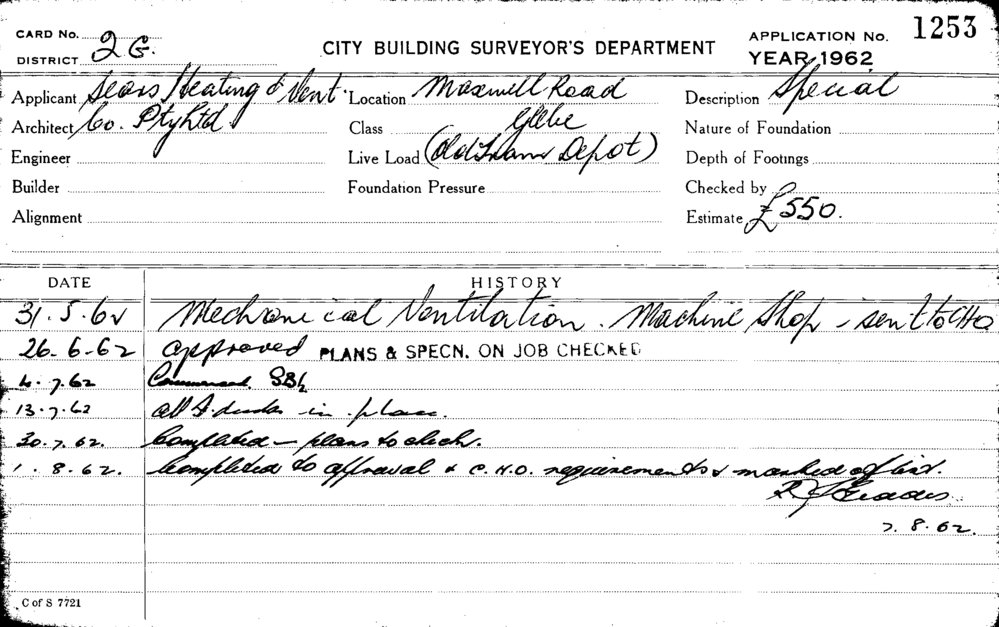 CARD No. 2 G.
DISTRICT
CITY BUILDING SURVEYOR'S DEPARTMENT
APPLICATION No. 1253
YEAR 1962
Applicant Sears Heating & Vent. Location Maxwell Road Description Special
Architect Co. Pty Ltd. Class Glebe Nature of Foundation
Engineer Live Load (Old Tram Depot) Depth of Footings
Builder Foundation Pressure Checked by
Alignment Estimate £550.
DATE HISTORY
31.5.62 Mechanical Ventilation. Machine Shop - sent to CHO
26-6-62 approved PLANS & SPECN. ON JOB CHECKED
4.7.62 Commenced.
13.7.62 all in place.
30.7.62. Completed - plans to check.
1.8.62. Completed to approval & C.H.O. requirements & marked off list.
7.8.62.
C of S 7721